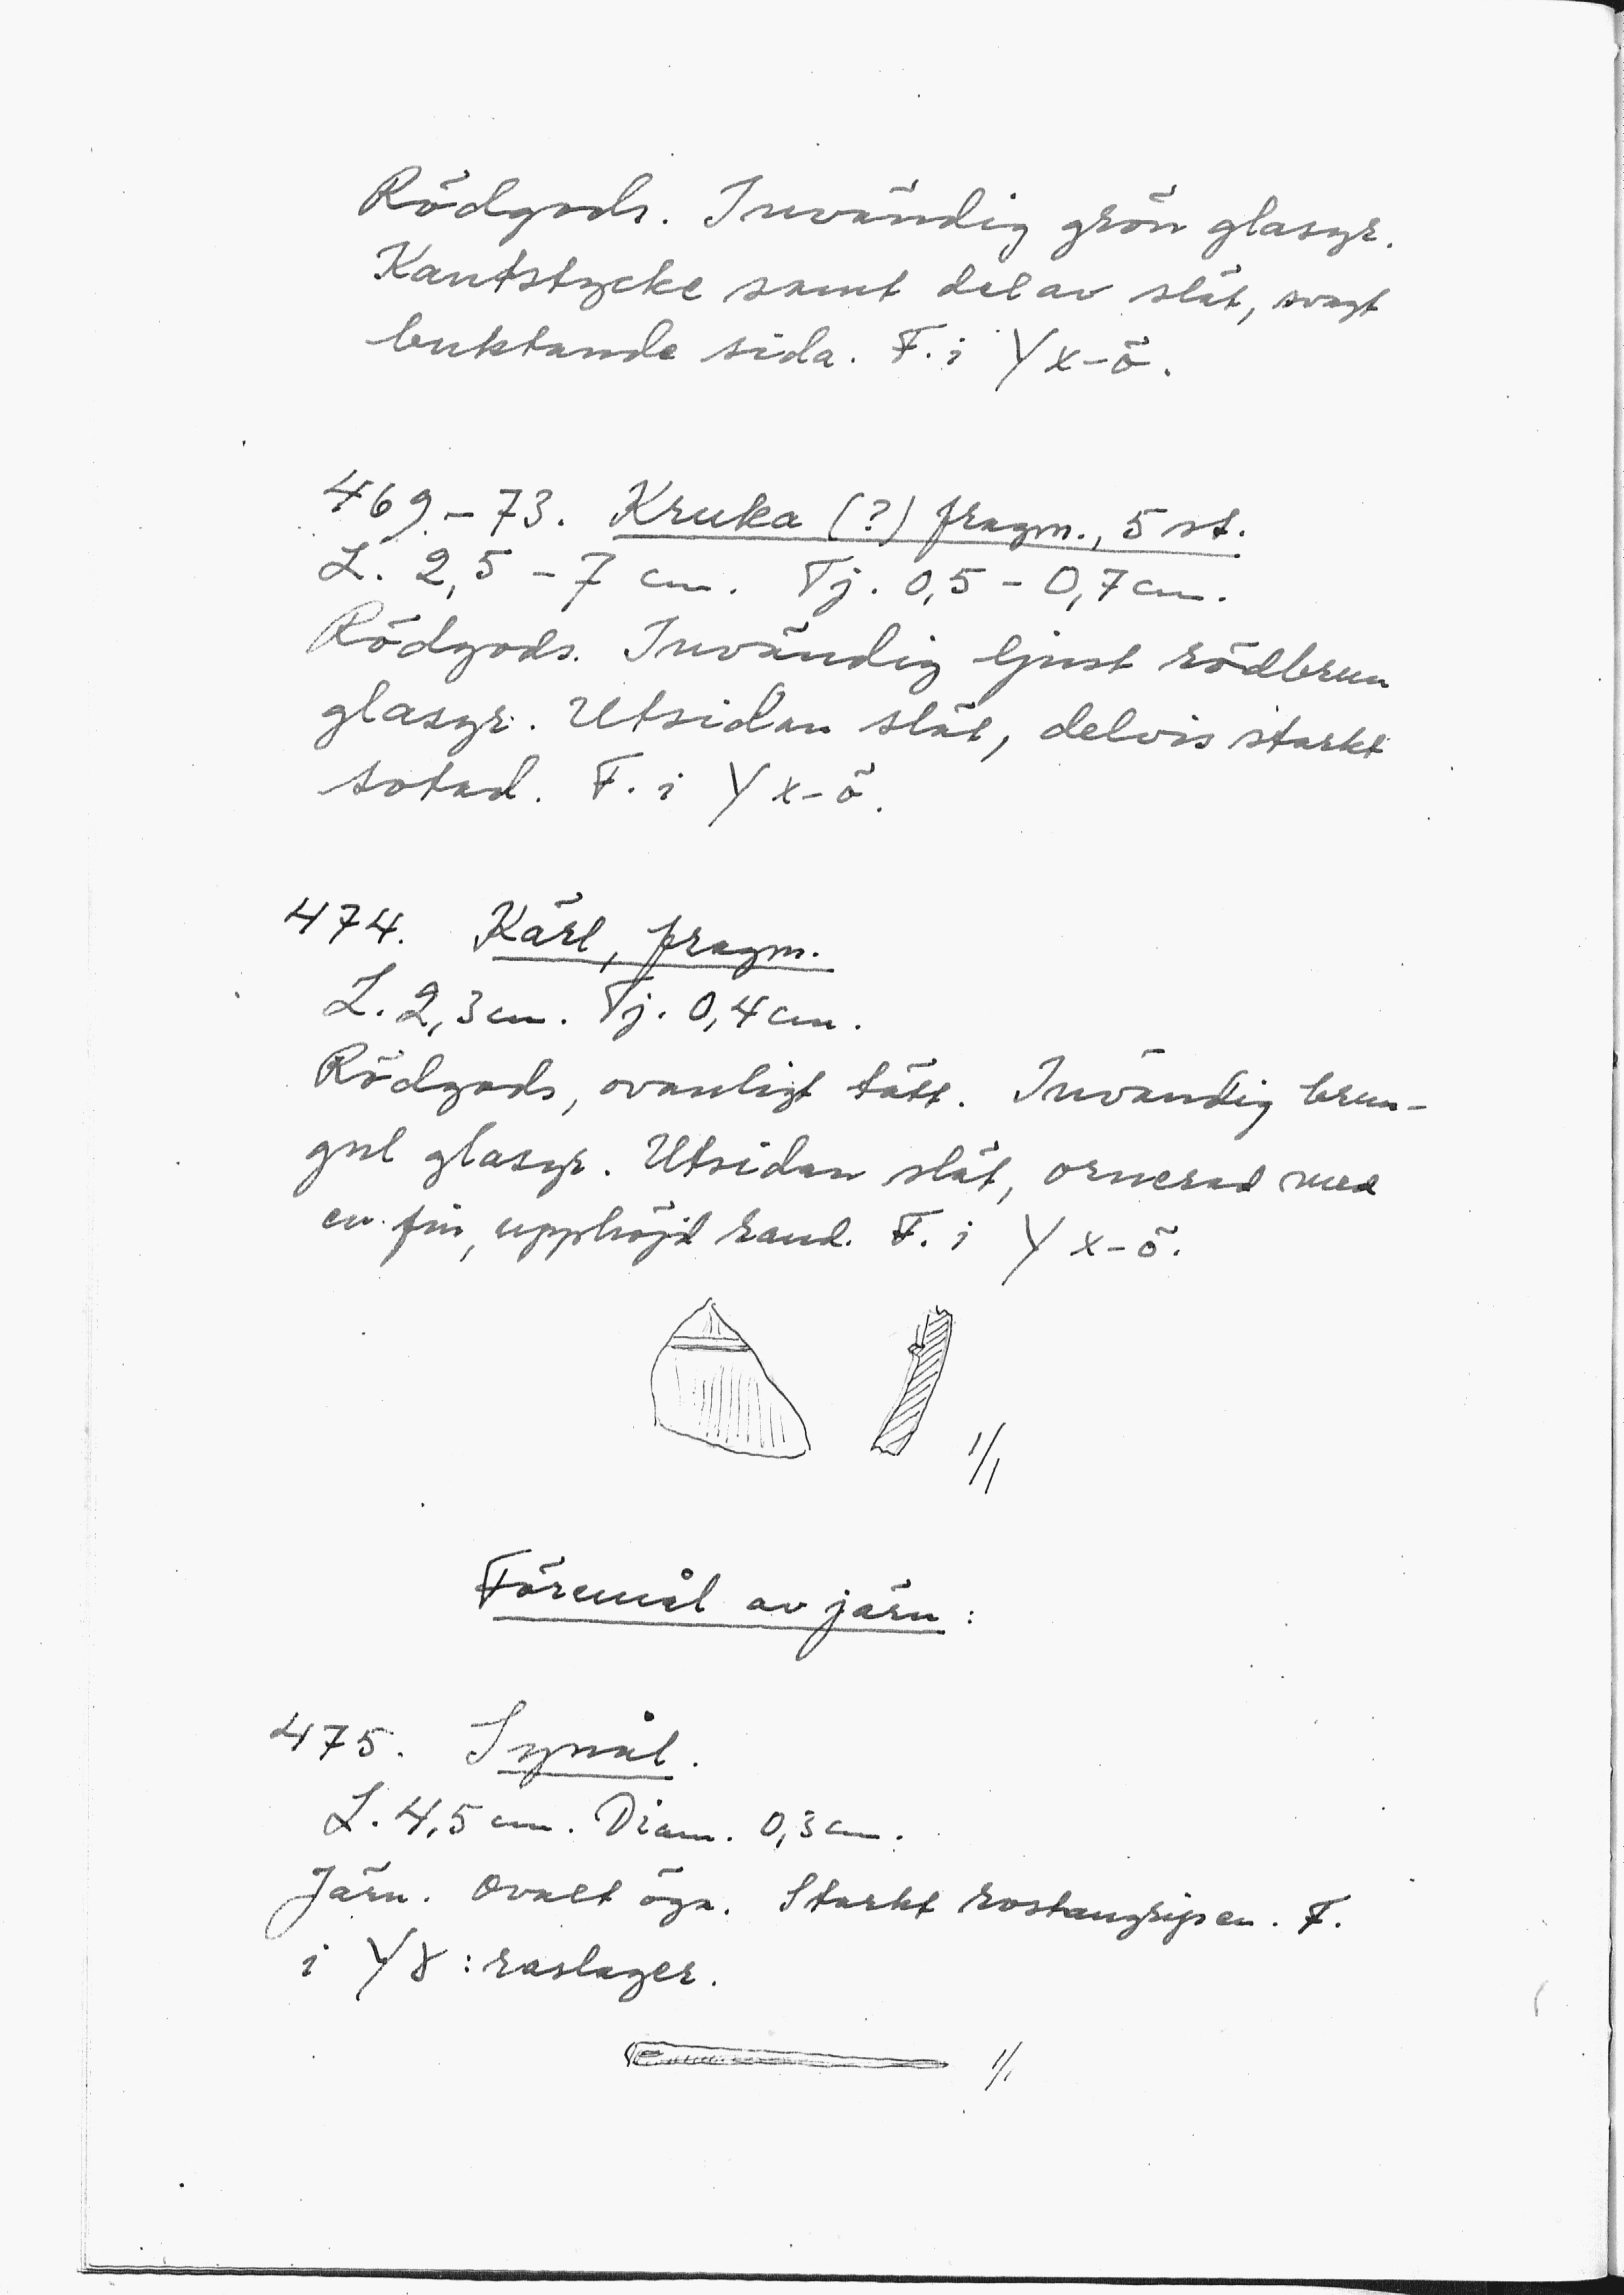 Rödgods. Invändig grön glasyr.
Kantstycke samt del av slät, svagt
buktande sida. F. i Yx-ö.
469-73. Kruka (?) fragm., 5 st.
L. 2,5 - 7 cm. Tj. 0,5 - 0,7 cm.
Rödgods. Invändig ljust rödbrun
glasyr. Utsidan slät, delvis starkt
sotad. F. i Yx-ö.
474. Kärl, fragm.
L. 2,3 cm. Tj. 0,4 cm.
Rödgods, ovanligt tätt. Invändig brun-
gul glasyr. Utsidan slät, ornerad med
en fin, upphöjd rand. F. i Yx-ö.
1/1
Föremål av järn:
475. Synål.
L. 4,5 cm. Diam. 0,3 cm.
Järn. Ovalt öga. Starkt rostangripen. F.
i Yɣ: raslager.
1/1